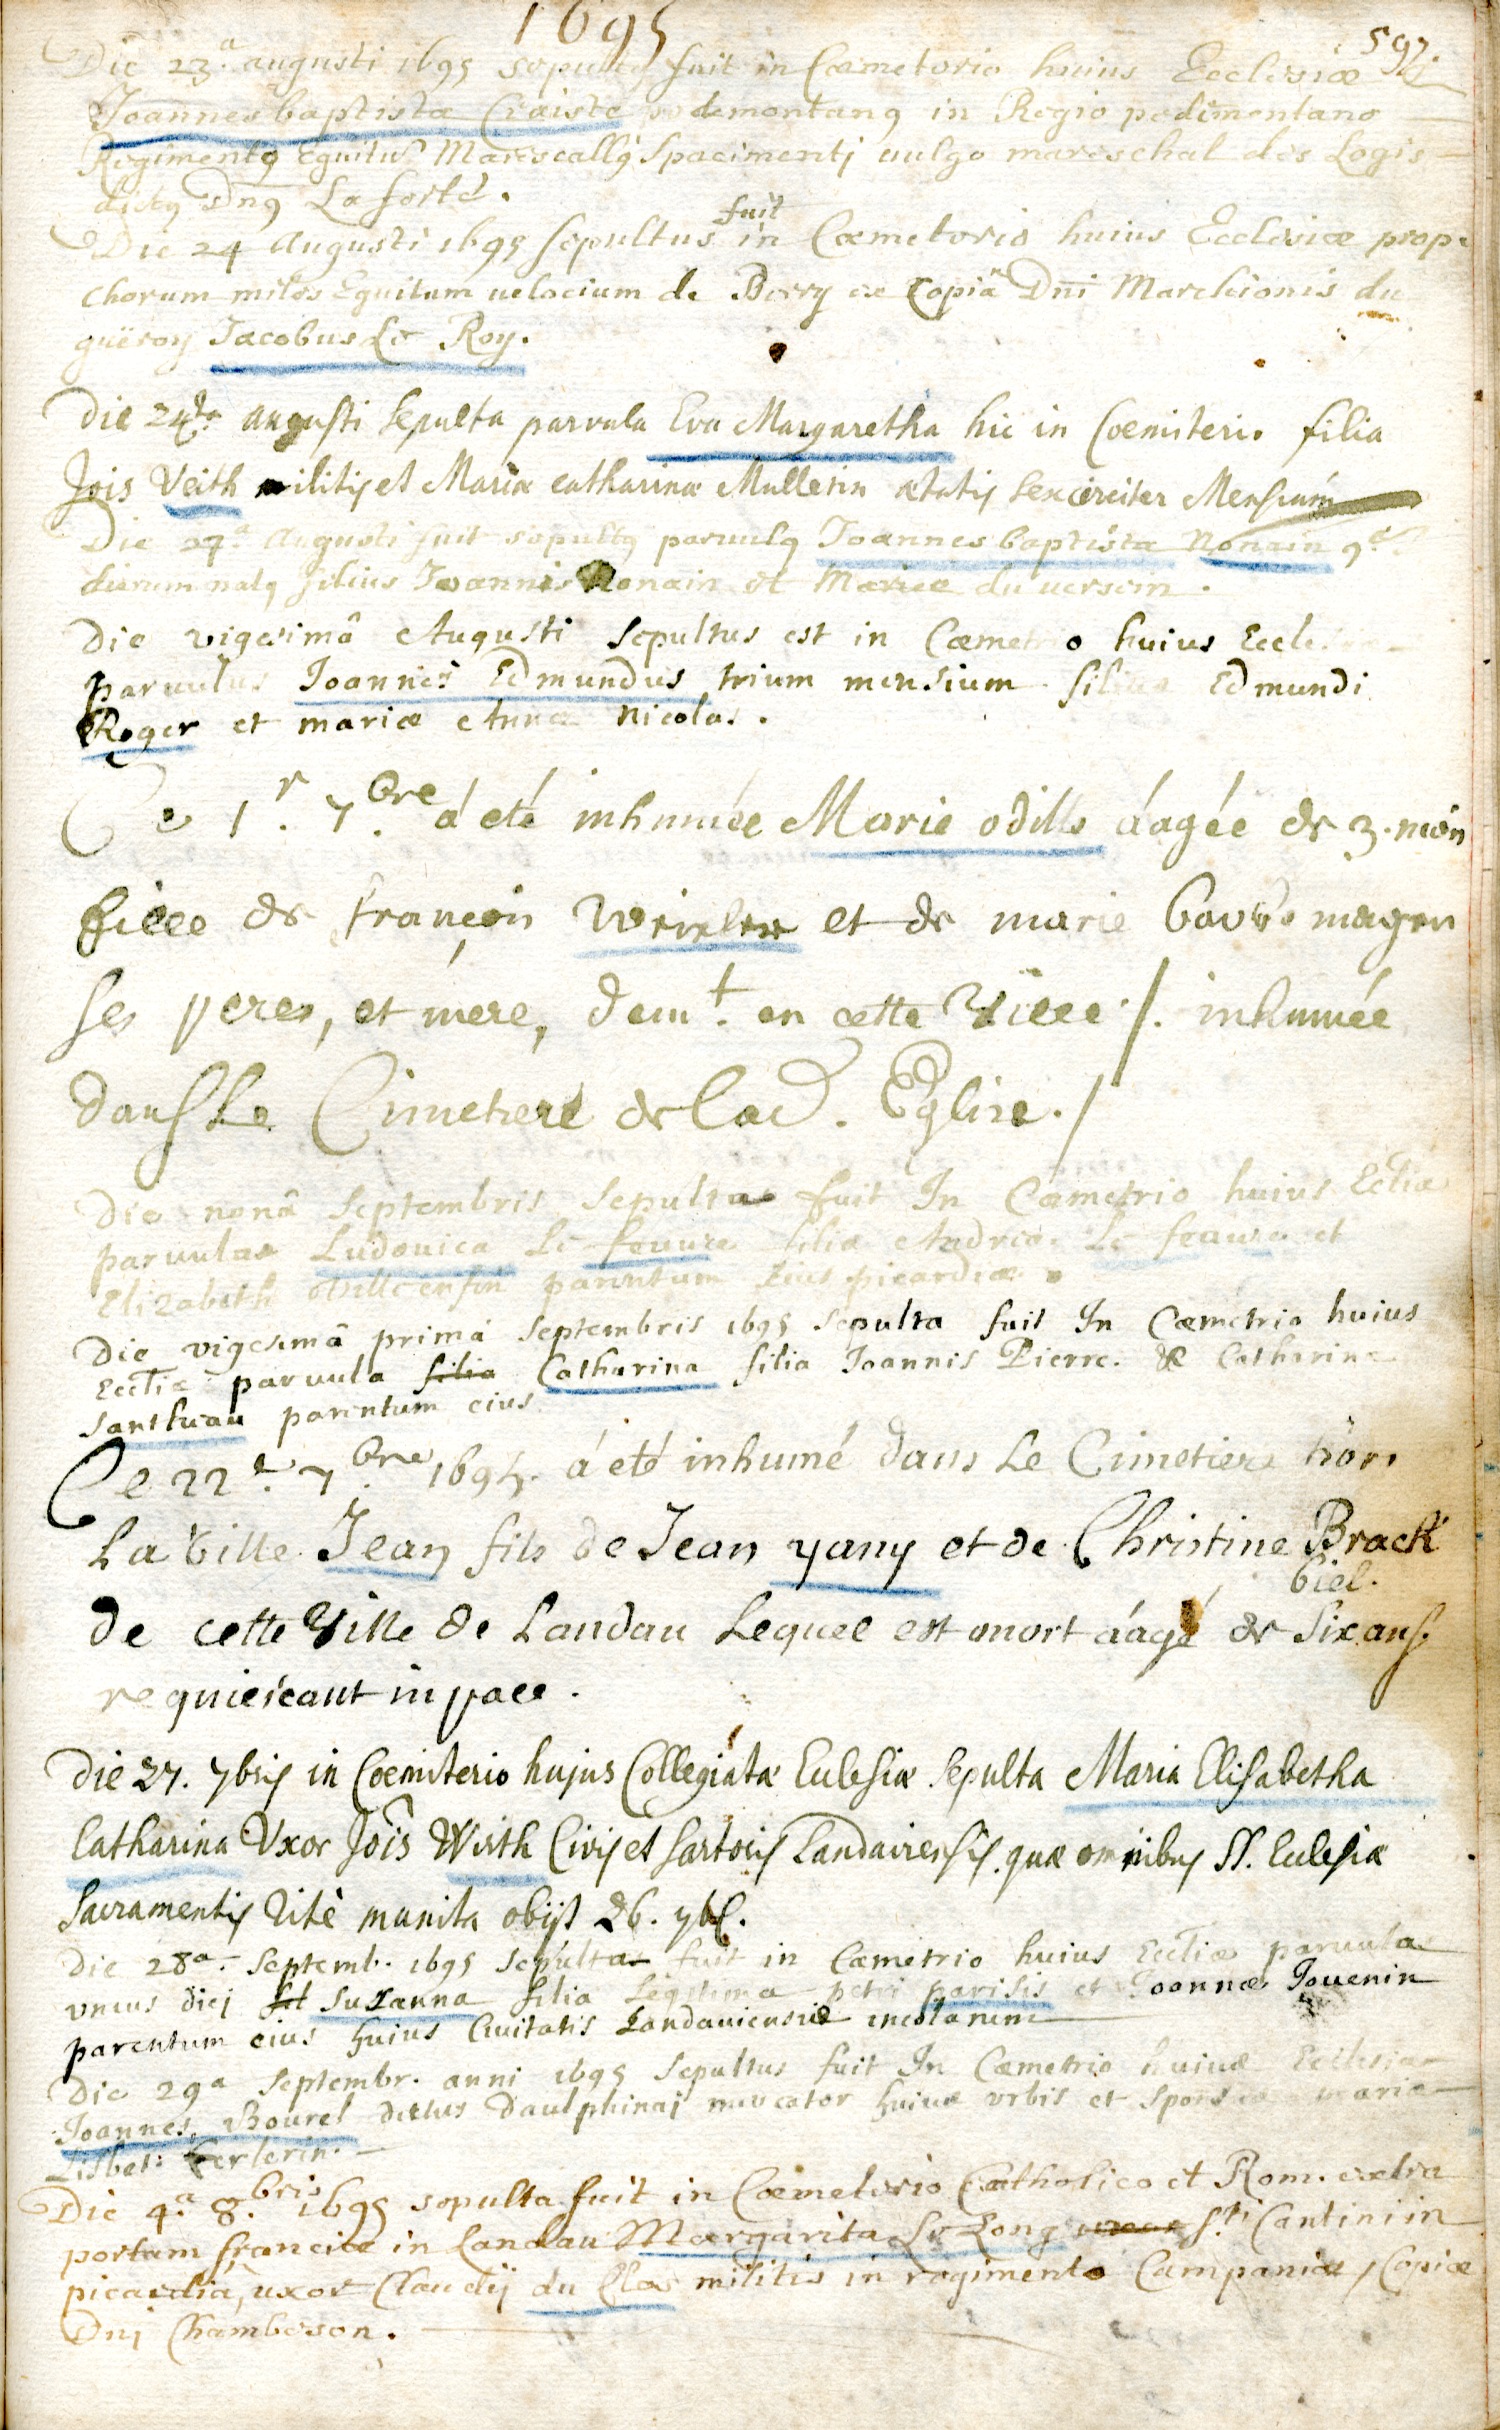 1695
597.
Die 23.a augusti 1695 sepultq fuit in Cœmetorio huius Ecclesiæ
Joannes baptista Craiste pedemontanq in Regio pedemontano
Regimentq Equitum Marescallq Spacimentj uulgo mareschal des Logis
dictq Dnq La forté.
Die 24 Augusti 1695 sepultus fuit in Cœmetorio huius Ecclesiæ prope
Chorum miles Equitum uelocium de Berry ex Copiâ Dni Marchionis du
guëroy Jacobus Le Roy.
Die 24ta augusti sepulta parvula Eva Margaretha hic in Coemiterio filia
Jois Veith militis et Mariæ catharinæ Mullerin ætatis sex circiter Mensium
Die 27.a Augusti fuit sepultq paruulq Joannes baptista Nonain 9
dierum natq filius Joannis Nonain et Mariæ du uersein.
Die vigesimâ Augusti sepultus est in Cœmetrio huius Eccle
paruulus Joannes Edmundus trium mensium filius Edmundi
Roger et mariæ Annæ Nicolas.
Ce 1r. 7bre á eté inhumée Marie odille áagée de 3. mois
fille de françois et de marie
ses peres, et mere, demt. en cette Ville ./. inhumée
dans Le Cimetiere de Lad. Eglise./
Die nonâ septembris sepulta fuit In Cœmetrio huius Ecliæ
paruula Ludouica Le feuure filia Andreæ Le feaure et
Elizabeth parentum eius picardiæ
Die vigesimâ primâ septembris 1695 sepulta fuit In Cœmetrio huius
Ecctiæ paruula filia Catharina filia Joannis Pierre & Catharinæ
parentum eius
Ce 22e. 7bre 1695. á eté inhumé dans Le Cimetiere hors
La Ville Jean fils de Jean yany et de Christine Brack
biel.
de cette Ville de Landau Lequel est mort áagé de six ans.
requiescant in pace.
Die 27. 7bris in Coemiterio hujus Collegiatæ Eulesiæ sepulta Maria Elisabetha
Catharina Vxor Jois Wirth Civis et sartoris Landaviensis quæ omnibus SS. Eulesiæ
Sacramentis ritè munita obijt 26. 7bl.
Die 28a. septemb. 1695 sepulta fuit in Cœmetrio huius Ecctiæ paruula
vnius diej Suzanna filia Legitima petri parisis et Joannæ Jouenin
parentum eius huius Ciuitatis Landauiensis incolarum
Die 29a septembr. anni 1695 sepultus fuit In Cœmetrio huius Ecclesiæ
Joannes Bourel dictus Daulphinaj mercator huius vrbis et sponsus mariæ
Lisbet: Ferlerin.
Die 4.a 8.bris 1695 sepulta fuit in Cœmeterio Catholico et Rom. extra
portam franciæ in Landau Margarita Le Long uxor Sti Cantini in
picardiâ, uxor Claudij du Clos militis in regimento Campaniæ, Copiæ
Dnj Chamboson.